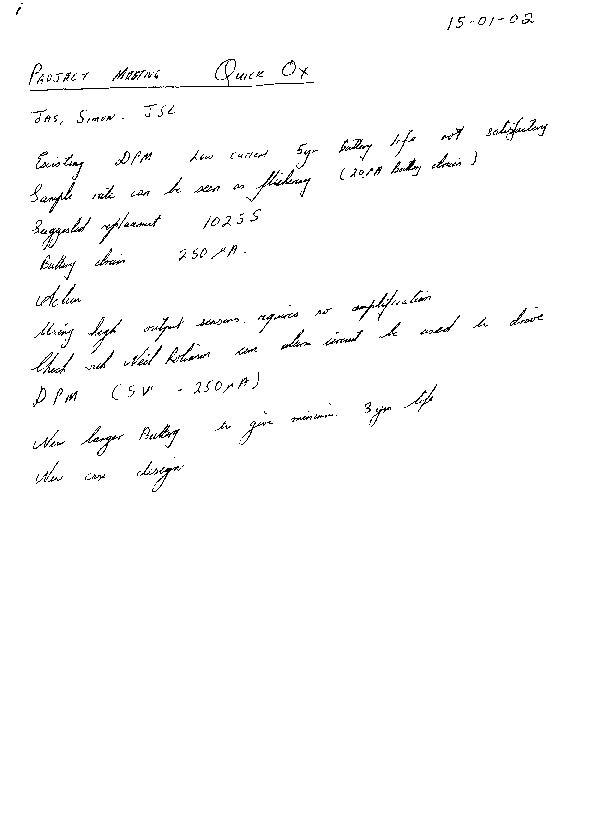 15-01-02
PROJECT MEETING QUICK OX
JAS, SIMON. JSL
Existing DPM Low current 5yr Battery life not satisfactory
Sample rate can be seen as flickering (20μA Battery drain)
Suggested replacment 1025S
Battery drain 250μA.
Action
Using high output sensors. requires no amplification
Check with Neil can alarm circuit be used to drive
DPM (5V - 250μA)
New larger Battery to give minimum. 3yr life
New case design